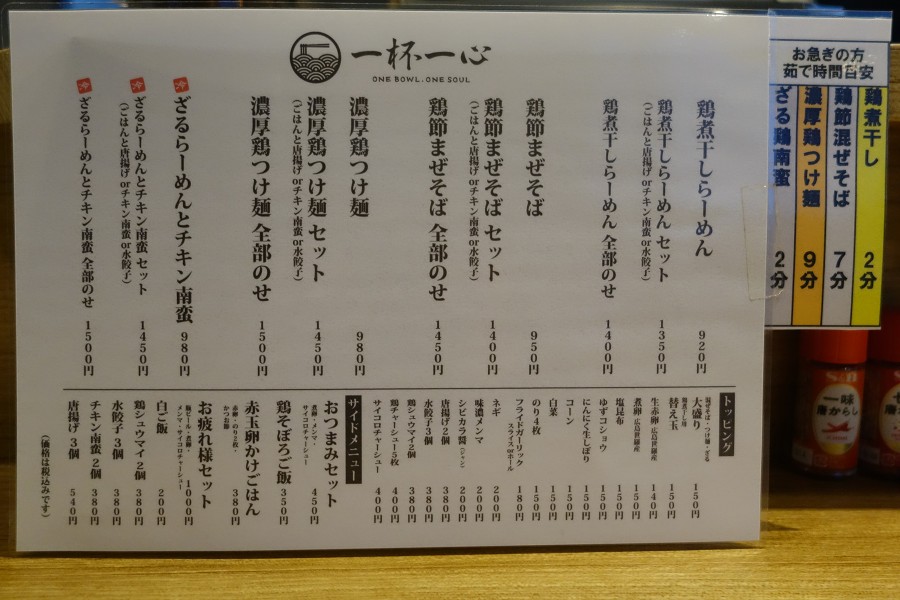 一杯一心
ONE BOWL. ONE SOUL
鶏煮干しらーめん 920円
鶏煮干しらーめん セット 1350円
(ごはんと唐揚げorチキン南蛮or水餃子)
鶏煮干しらーめん 全部のせ 1400円
鶏節まぜそば 950円
鶏節まぜそば セット 1400円
(ごはんと唐揚げorチキン南蛮or水餃子)
鶏節まぜそば 全部のせ 1450円
濃厚鶏つけ麺 980円
濃厚鶏つけ麺 セット 1450円
(ごはんと唐揚げorチキン南蛮or水餃子)
濃厚鶏つけ麺 全部のせ 1500円
冷 ざるらーめんとチキン南蛮 980円
冷 ざるらーめんとチキン南蛮 セット 1450円
(ごはんと唐揚げorチキン南蛮or水餃子)
冷 ざるらーめんとチキン南蛮 全部のせ 1500円
トッピング
大盛り 混ぜそば・つけ麺・ざる 150円
替え玉 鶏煮干し用 150円
生赤卵 広島世羅産 140円
煮卵 広島世羅産 150円
塩昆布 150円
ゆずコショウ 150円
にんにく生しぼり 150円
コーン 150円
白菜 150円
のり4枚 150円
フライドガーリック 180円
スライスorホール
ネギ 200円
味濃メンマ 200円
シビカラ醤(ジャン) 200円
唐揚げ2個 380円
水餃子3個 380円
鶏シュウマイ2個 380円
鶏チャーシュー5枚 400円
サイコロチャーシュー 400円
サイドメニュー
おつまみセット 450円
煮卵・メンマ・
サイコロチャーシュー
鶏そぼろご飯 350円
赤玉卵かけごはん 380円
赤卵・のり2枚・
かつお節
お疲れ様セット 1000円
瓶ビール・煮卵・
メンマ・サイコロチャーシュー
白ご飯 200円
鶏シュウマイ2個 380円
水餃子3個 380円
チキン南蛮2個 380円
唐揚げ3個 540円
(価格は税込みです)
お急ぎの方
茹で時間目安
鶏煮干し 2分
鶏節混ぜそば 7分
濃厚鶏つけ麺 9分
ざる鶏南蛮 2分
S&B
一味
唐からし